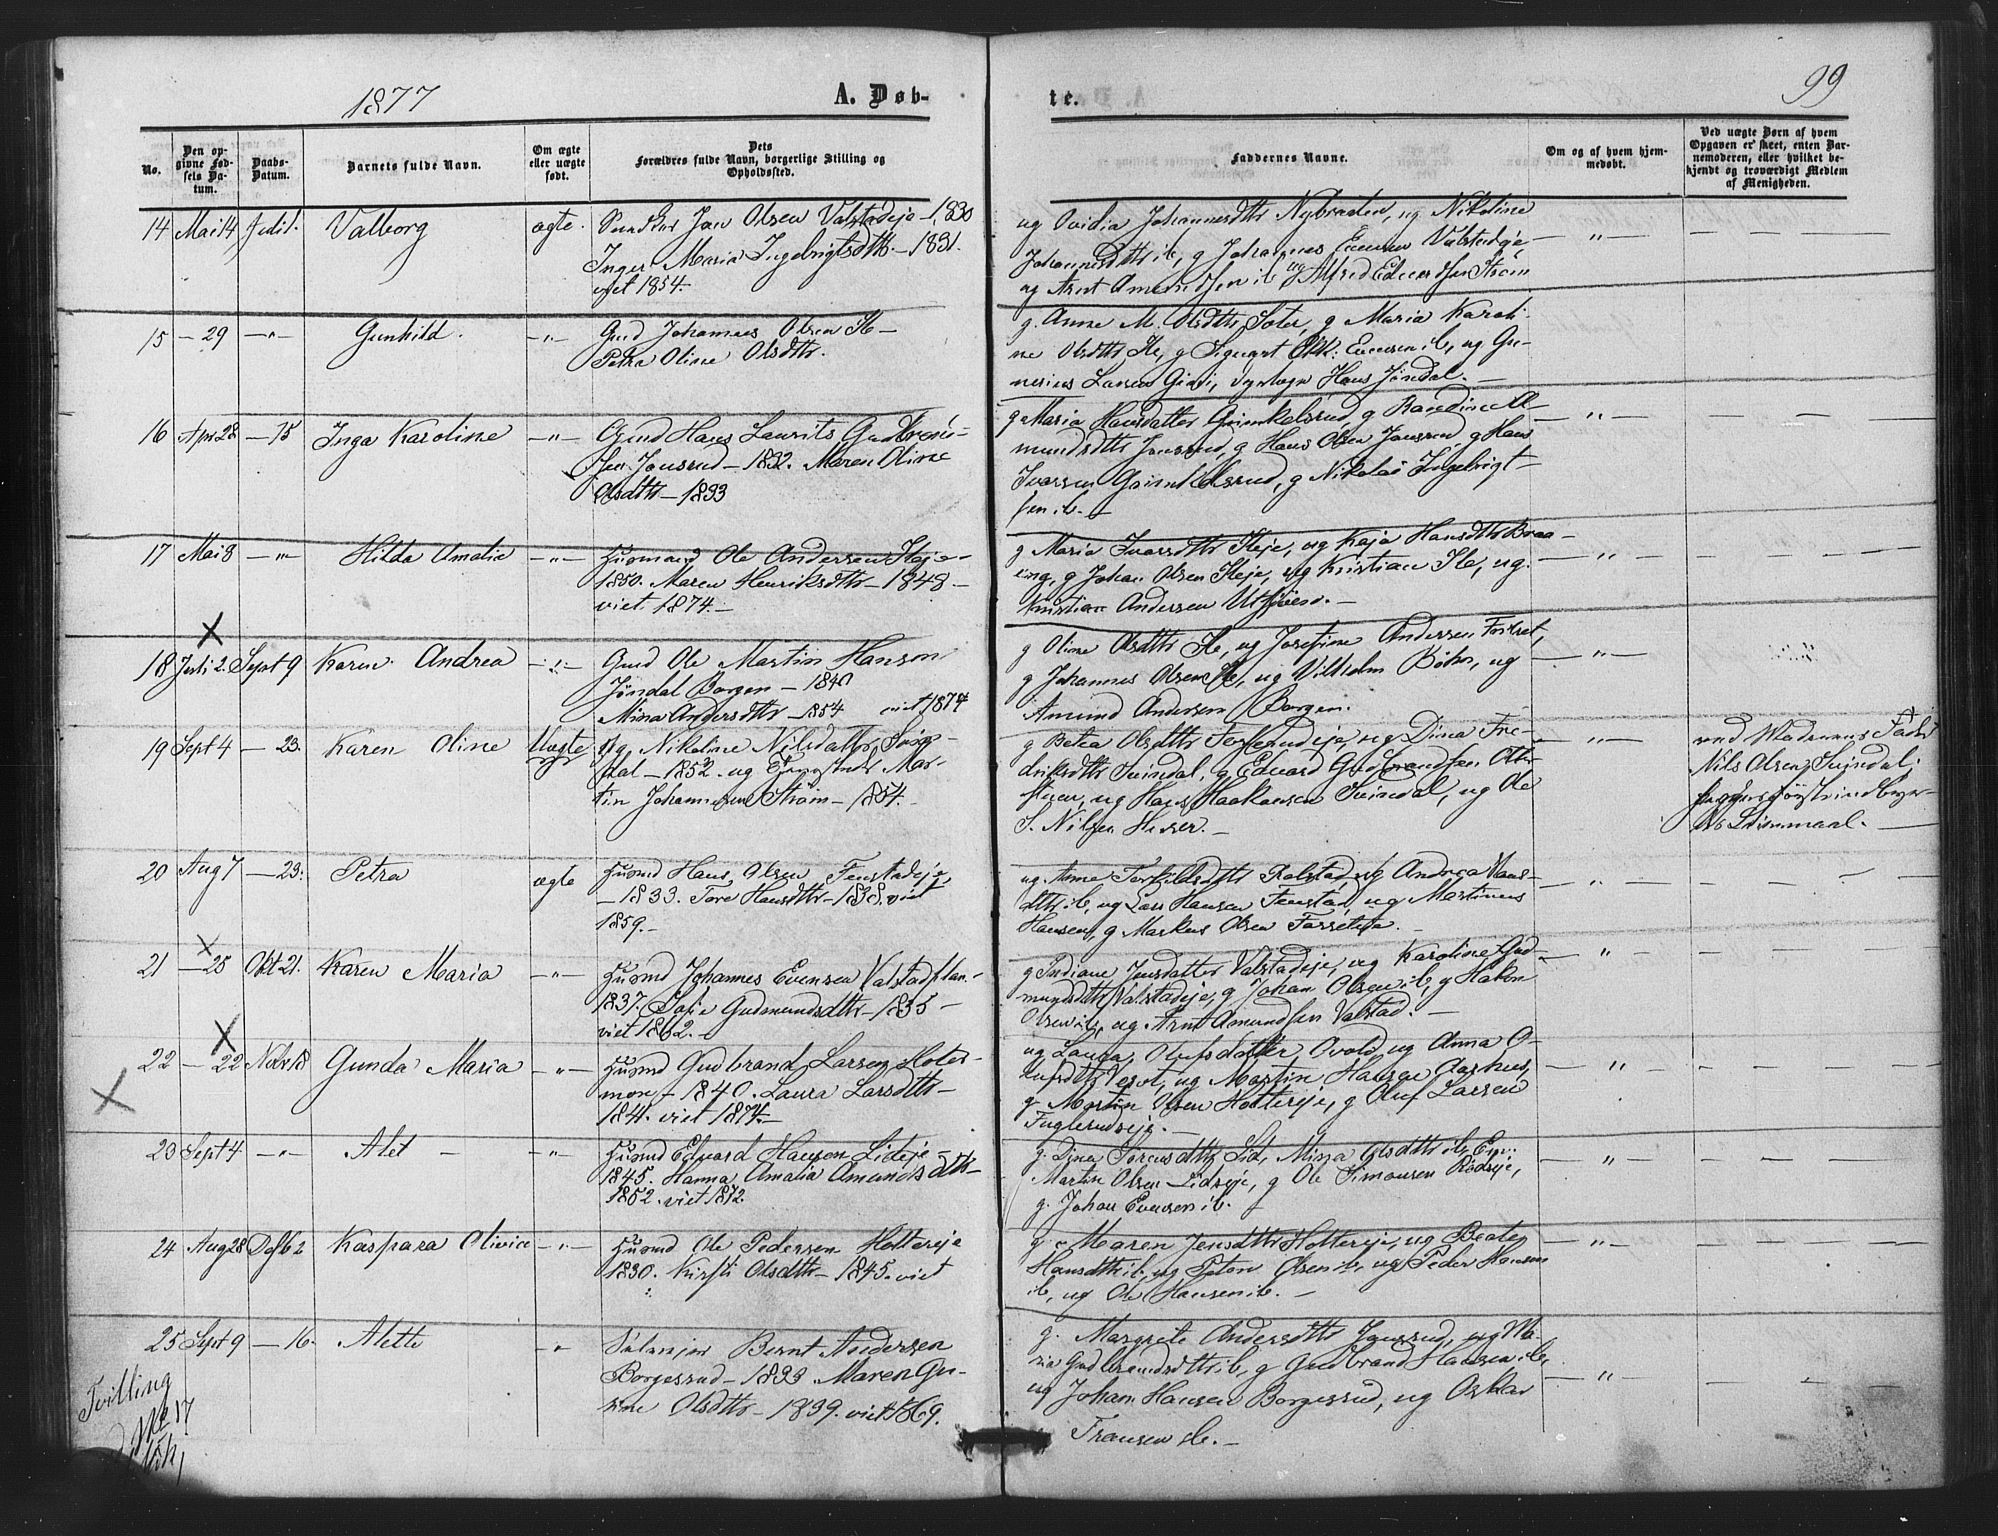 1877
A. Døb-
te.
99
No.
Den op-
givne Fød-
sels Da-
tum.
Daabs-
Datum.
Barnets fulde Navn.
Om ægte
eller uægte
født.
Dets
Forældres fulde Navn, borgerlige Stilling og
Opholdssted.
Faddernes Navne.
Om og af hvem hjem-
medøbt.
Ved uægte Børn af hvem
Opgaven er skeet, enten Bar-
nemoderen, eller hvilket be-
kjendt og troværdigt Medlem
af Menigheden.
14 Mai 14 Valborg ægte. Jan Olsen Valstadeje - 1830
Inger Maria Ingebrigtsdtr - 1831.
viet 1854.
ug Ovidia Johannesdtr Nybraaten, ug Nikoline
Johannesdtr ib, g Johannes Evensen Valstadeje,
ug Arnt Amundsen ib ug Alfred Edvardsen Strøm
15 - 29 -"- Gunhild. -"- Gmd Johannes Olsen Ile -
Petra Oline Olsdtr.
g. Anne M. Olsdtr Soter, g Maria Karoli-
ne Olsdtr Ile, g Sigvart Evensen ib, ug Gu-
nerius Larsen Hans Jøndal. -
16 Apr 28 - 15 Inga Karoline -"- Gmd Hans Laurits Gudbrand-
sen Jonsrud - 1832. Maren Oline
Olsdtr - 1833
g Maria Hansdatter Grimkelsrud g Randine A-
mundsdtr Jonsrud, g Hans Olsen Jonsrud, g Hans
Ivarsen Grimkelsrud, g Nikolai Ingebrigt-
sen ib. -
17 Mai 8 -"- Hilda Amalie -"- Husmand Ole Andersen Ileje -
1850. Maren Henriksdtr - 1848 -
viet. 1874. -
g Maria Ivarsdtr Ileje, ug Kaja Hansdtr Braa-
ten, g Johan Olsen Ileje, ug Kristian Ile, ug.
Kristian Andersen -
18 Juli 2. Sept 9 Karen Andrea -"- Gmd Ole Martin Hansen
Jøndal Borgen - 1840
Mina Andersdtr - 1854 viet 1874
g Oline Olsdtr Ile, ug Josefine Andersen
g Johannes Olsen Ile, ug Vilhelm Bøhn, ug
Amund Andersen Borgen.
19 Sept 4 - 23. Karen Oline Uægte Pig. Nikoline Nilsdatter Svin-
dal - 1852. ug Mar-
tin Johannesen Strøm - 1854. -
g Betea Olsdtr ug Dina Fre-
driksdtr Svindal, g Edvard Gudbrandsen
ug Hans Haakonsen Svindal, ug Ole
S. Nilsen -
ved Moderens Fader
Nils Olsen Svindal;
20 Aug 7 - 23. Petra ægte Husmd Hans Olsen Fenstadeje
- 1833. Tore Hansdtr - 1838. viet
1859. -
ug. Anne Torkildsdtr Rolstad ug Andrea Hans-
dtr ib, ug Lars Hansen Fenstad, ug Martinus
Hansen, g Markus Olsen -
21 - 25 Okt 21. Karen Maria -"- Husmd Johannes Evensen Valstadplan.
1837. Sofie Gudmundsdtr - 1835 -
viet 1862. -
g Indiane Jensdatter Valstadeje, ug Karoline Gud-
mundsdtr Valstadeje, g Johan Olsen ib, g Hakon
Olsen ib, ug Arnt Amundsen Valstad. -
22 - 22 Novbr 18 Gunda Maria -"- Husmd Gudbrand Larsen Holter-
moen - 1840. Laura Larsdtr -
1841. viet 1874. -
ug Laura Olufsdatter Ovold ug Anna O-
lufsdtr ug Martin Hansen Aarhus,
g Martin Olsen Holtereje, g Oluf Larsen
Fuglerudeje. -
23 Sept 4 -"- Alet - -"- Husmd Edvard Hansen Lideje -
1845. Hanna Amalia Amundsdtr -
1852. viet 1872.
g. Dina Lid, Mina Olsdtr ib,
Martin Olsen Lideje, g Ole Simonsen Rødseje,
g. Johan Evensen ib. -
24 Aug 28 Kaspara Olivie -"- Husmd Ole Pedersen Holtereje
1830. Kirsti Olsdtr - 1845. viet
g. Maren Jensdtr Holtereje, ug Beate
Hansdtr ib, ug Olsen ib, ug Peder Hansen
ib, ug Ole Hansen ib. -
25 Sept 9 - 16. Alette -"- Bernt Andersen
Borgesrud - 1833 Maren Gu-
rine Olsdtr - 1839. viet 1869.
g. Margrete Andersdtr Jonsrud, ug Ma-
ria Gudbrandsdtr ib, g Gudbrand Hansen ib,
ug Johan Hansen Borgesrud, ug Oskar
Fransen Ile. -
Tvilling